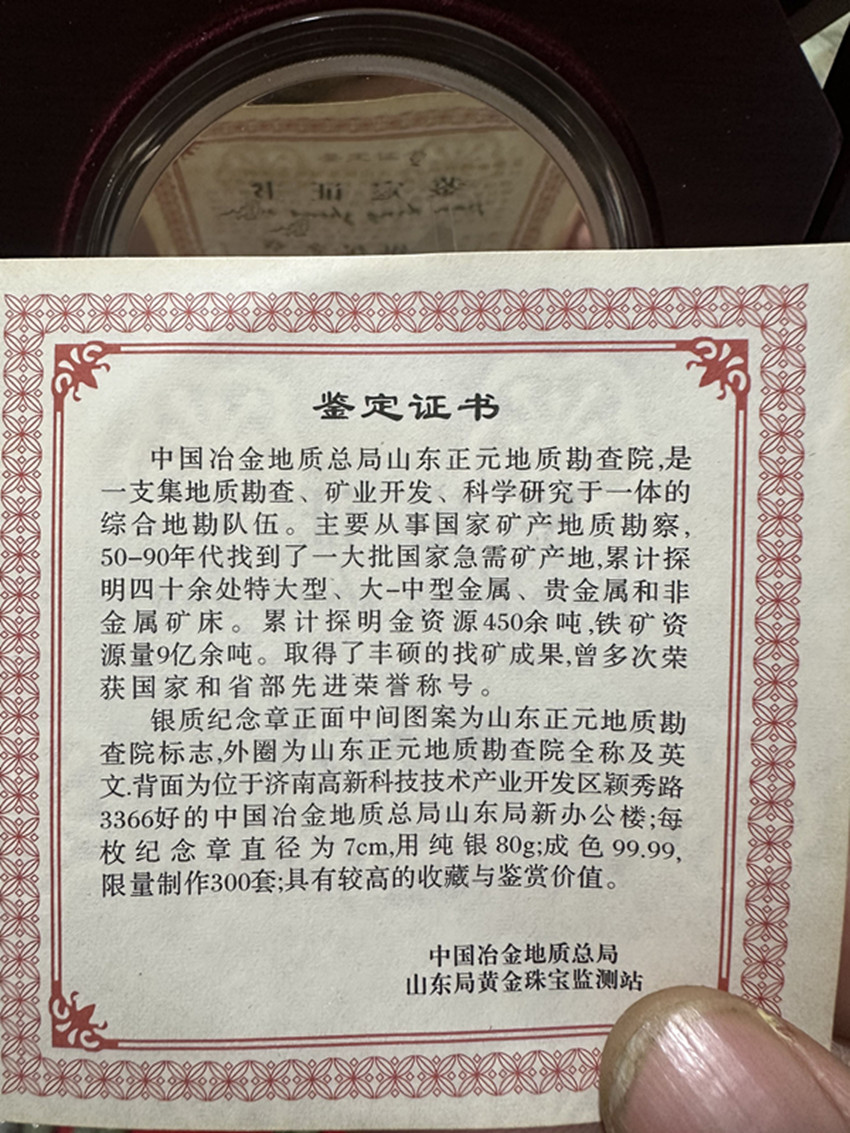 鉴定证书
中国冶金地质总局山东正元地质勘查院,是
一支集地质勘查、矿业开发、科学研究于一体的
综合地勘队伍。主要从事国家矿产地质勘察,
50-90年代找到了一大批国家急需矿产地,累计探
明四十余处特大型、大-中型金属、贵金属和非
金属矿床。累计探明金资源450余吨,铁矿资
源量9亿余吨。取得了丰硕的找矿成果,曾多次荣
获国家和省部先进荣誉称号。
银质纪念章正面中间图案为山东正元地质勘
查院标志,外圈为山东正元地质勘查院全称及英
文.背面为位于济南高新科技技术产业开发区颖秀路
3366好的中国冶金地质总局山东局新办公楼;每
枚纪念章直径为7cm,用纯银80g;成色99.99,
限量制作300套;具有较高的收藏与鉴赏价值。
中国冶金地质总局
山东局黄金珠宝监测站